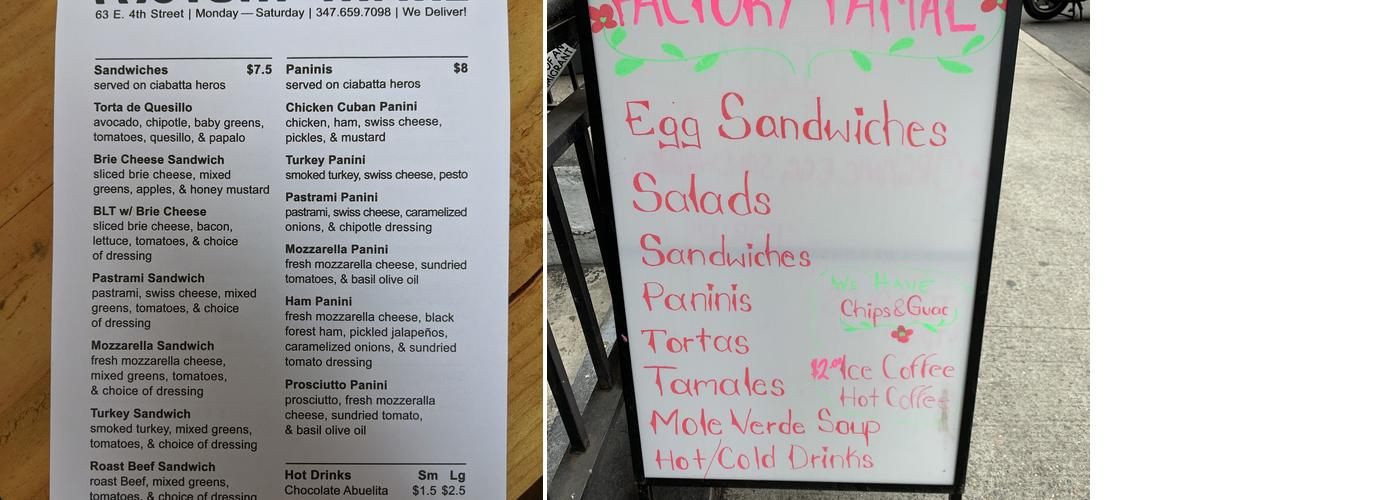 63 E. 4th Street | Monday — Saturday | 347.659.7098 | We Deliver!
Sandwiches $7.5
served on ciabatta heros
Torta de Quesillo
avocado, chipotle, baby greens,
tomatoes, quesillo, & papalo
Brie Cheese Sandwich
sliced brie cheese, mixed
greens, apples, & honey mustard
BLT w/ Brie Cheese
sliced brie cheese, bacon,
lettuce, tomatoes, & choice
of dressing
Pastrami Sandwich
pastrami, swiss cheese, mixed
greens, tomatoes, & choice
of dressing
Mozzarella Sandwich
fresh mozzarella cheese,
mixed greens, tomatoes,
& choice of dressing
Turkey Sandwich
smoked turkey, mixed greens,
tomatoes, & choice of dressing
Roast Beef Sandwich
roast Beef, mixed greens,
tomatoes, & choice of dressing
Paninis $8
served on ciabatta heros
Chicken Cuban Panini
chicken, ham, swiss cheese,
pickles, & mustard
Turkey Panini
smoked turkey, swiss cheese, pesto
Pastrami Panini
pastrami, swiss cheese, caramelized
onions, & chipotle dressing
Mozzarella Panini
fresh mozzarella cheese, sundried
tomatoes, & basil olive oil
Ham Panini
fresh mozzarella cheese, black
forest ham, pickled jalapeños,
caramelized onions, & sundried
tomato dressing
Prosciutto Panini
prosciutto, fresh mozzeralla
cheese, sundried tomato,
& basil olive oil
Hot Drinks Sm Lg
Chocolate Abuelita $1.5 $2.5
FACTORY TAMAL
Egg Sandwiches
Salads
Sandwiches
Paninis
Tortas
Tamales
Mole Verde Soup
Hot/Cold Drinks
We Have
Chips & Guac
Ice Coffee
Hot Coffee